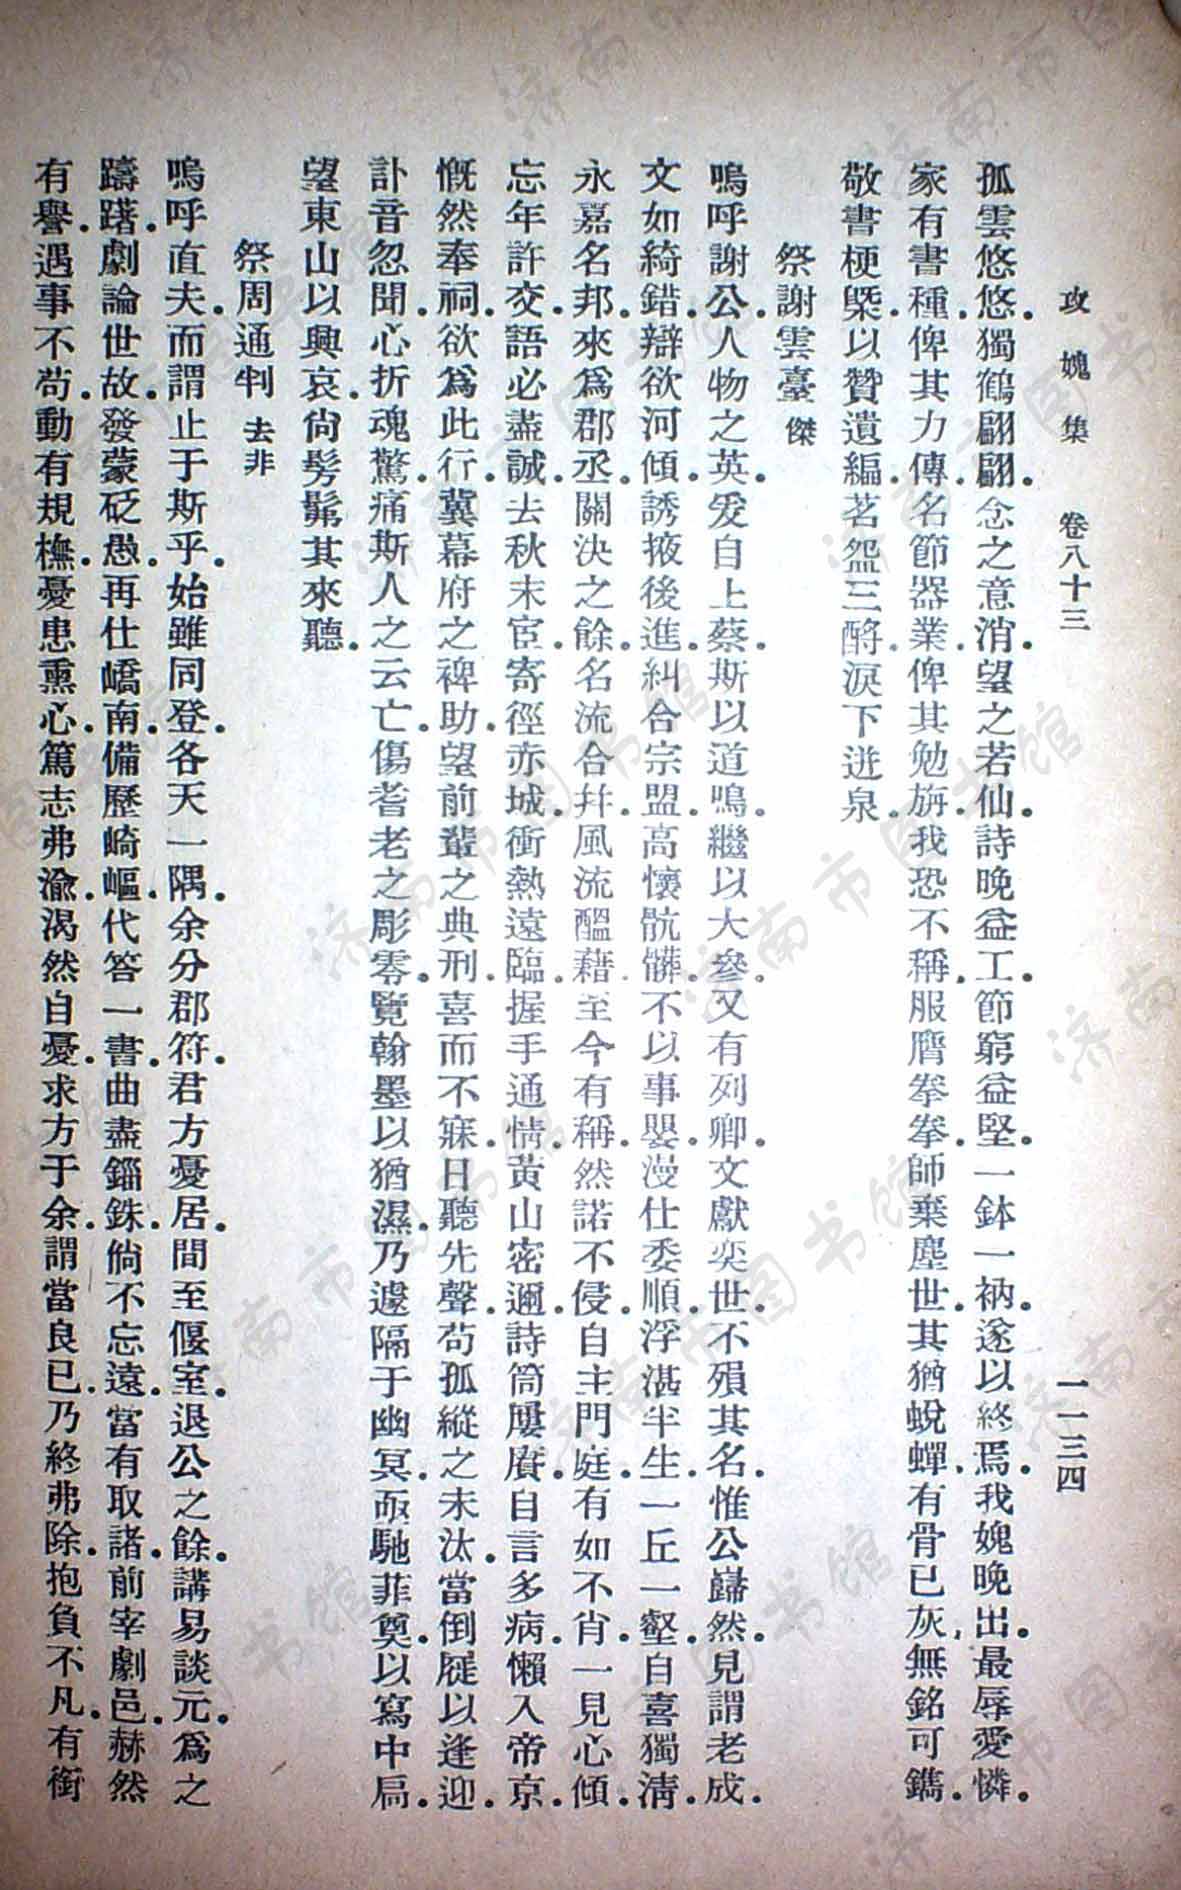 攻媿集　卷八十三　一一三四
孤雲悠悠。獨鶴翩翩。念之意消。望之若仙。詩晚益工。節窮益堅。一鉢一衲。遂以終焉。我媿晚出。最辱愛憐。
家有書種。俾其力傳。名節器業。俾其勉旃。我恐不稱。服膺拳拳。師棄塵世。其猶蛻蟬。有骨已灰。無銘可鐫。
敬書梗槩。以贊遺編。茗盌三酹。淚下迸泉。
祭謝雲臺　傑
嗚呼謝公。人物之英。爰自上蔡。斯以道鳴。繼以大參。又有列卿。文獻奕世。不殞其名。惟公巋然。見謂老成。
文如綺錯。辯欲河傾。誘掖後進。糾合宗盟。高懷骯髒。不以事嬰。漫仕委順。浮湛半生。一丘一壑。自喜獨淸。
永嘉名邦。來爲郡丞。關決之餘。名流合幷。風流醞藉。至今有稱。然諾不侵。自主門庭。有如不肖。一見心傾。
忘年許交。語必盡誠。去秋末宦。寄徑赤城。衝熱遠臨。握手通情。黃山密邇。詩筒屢賡。自言多病。懶入帝京。
慨然奉祠。欲爲此行。冀幕府之裨助。望前輩之典刑。喜而不寐。日聽先聲。苟孤縱之未汰。當倒屣以逢迎。
訃音忽聞。心折魂驚。痛斯人之云亡。傷耆老之彫零。覽翰墨以猶濕。乃遽隔于幽冥。亟馳菲奠。以寫中扃。
望東山以興哀。尙髣髴其來聽。
祭周通判　去非
嗚呼直夫。而謂止于斯乎。始雖同登。各天一隅。余分郡符。君方憂居。間至偃室。退公之餘。講易談元。爲之
躊躇。劇論世故。發蒙砭愚。再仕嶠南。備歷崎嶇。代答一書。曲盡錙銖。倘不忘遠。當有取諸。前宰劇邑。赫然
有譽。遇事不苟。動有規橅。憂患熏心。篤志弗渝。渴然自憂。求方于余。謂當良已。乃終弗除。抱負不凡。有銜